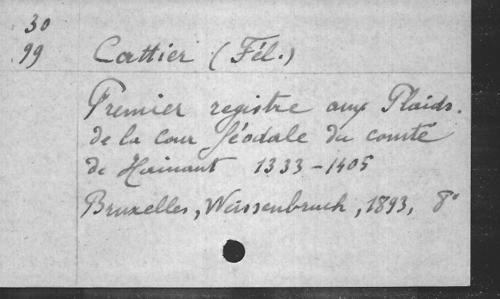 30
99 Cattier (Fél.)
Premier registre aux Plaids.
de la cour féodale du comté
de Hainaut 1333-1405
Bruxelles, Weissenbruch, 1893, 8°